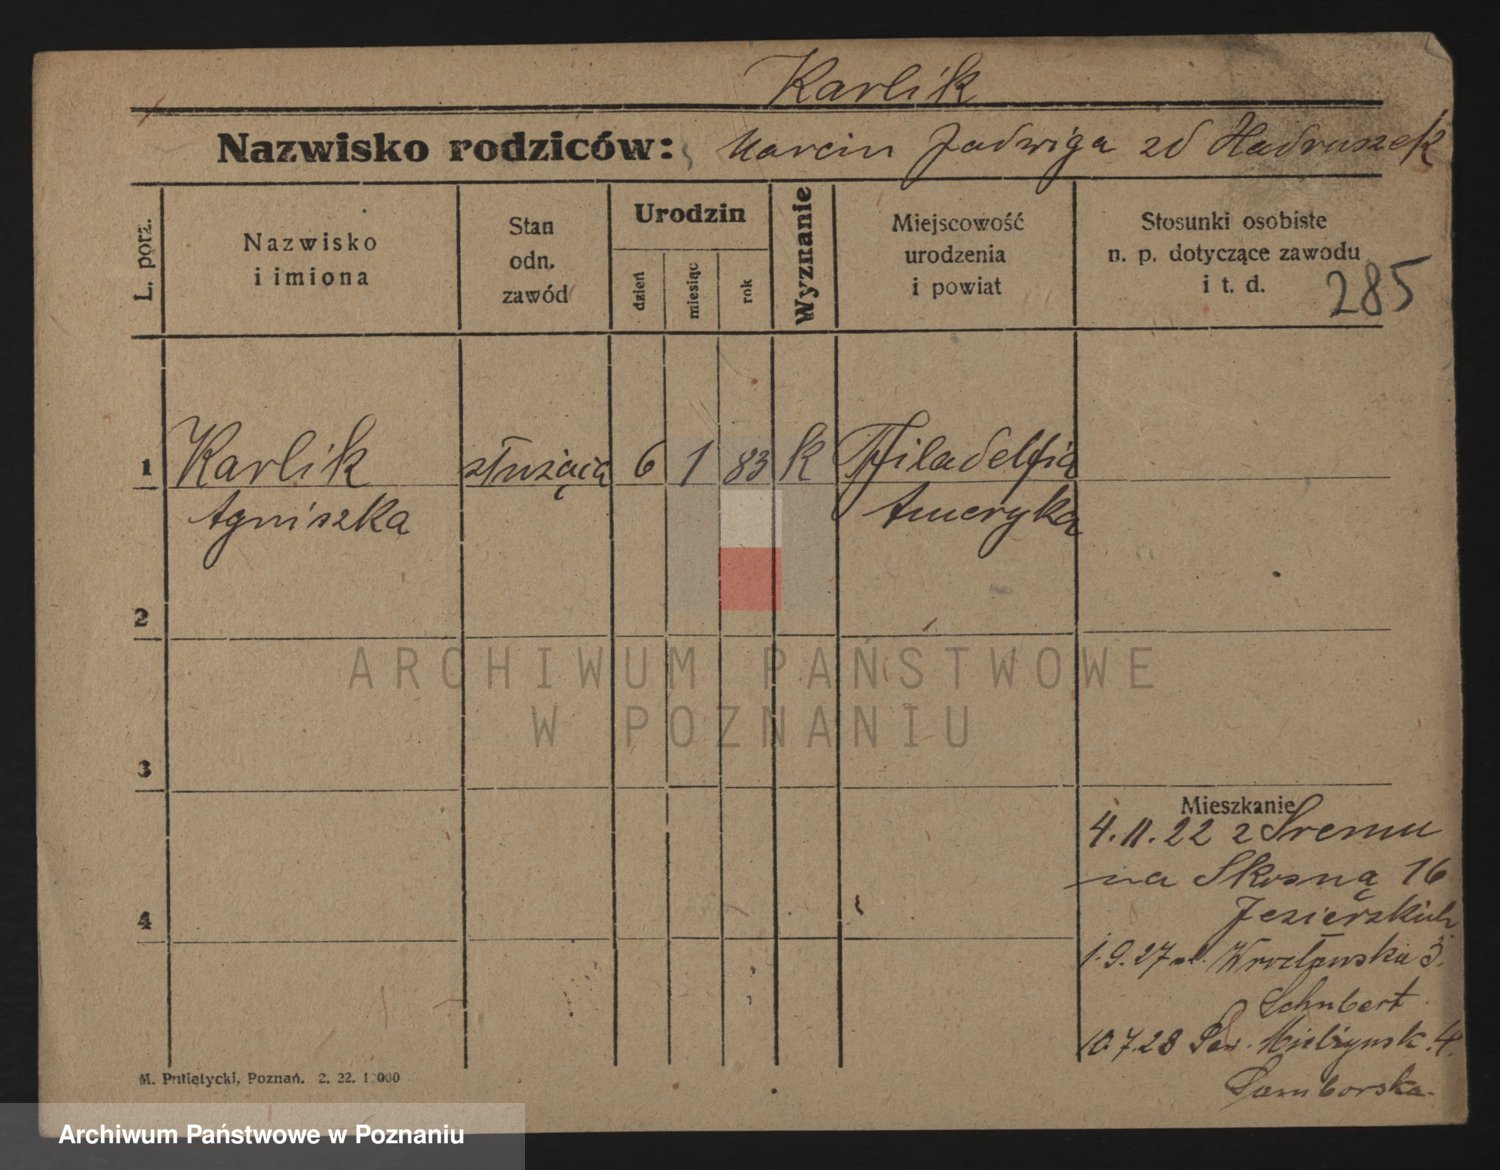 Karlik
Nazwisko rodziców: Marcin Jadwiga zd Hadruszek
L. porz.
Nazwisko
i imiona
Stan
odn.
zawód
Urodzin
dzień
miesiąc
rok
Wyznanie
Miejscowość
urodzenia
i powiat
Stosunki osobiste
n. p. dotyczące zawodu
i t. d.
285
1 Karlik służąca 6 1 83 k Filadelfia
Agniszka Ameryka
2
3
4
Mieszkanie
4.11.22 z Śremu
na Skośną 16
Jezierskich
1.9.27 Wrocławska 3.
Schubert
10.7.28 Sew. Mielżyńsk. 4.
Samborska.
M. Putiatycki, Poznań. 2. 22. 10000
ARCHIWUM PAŃSTWOWE
W POZNANIU
Archiwum Państwowe w Poznaniu